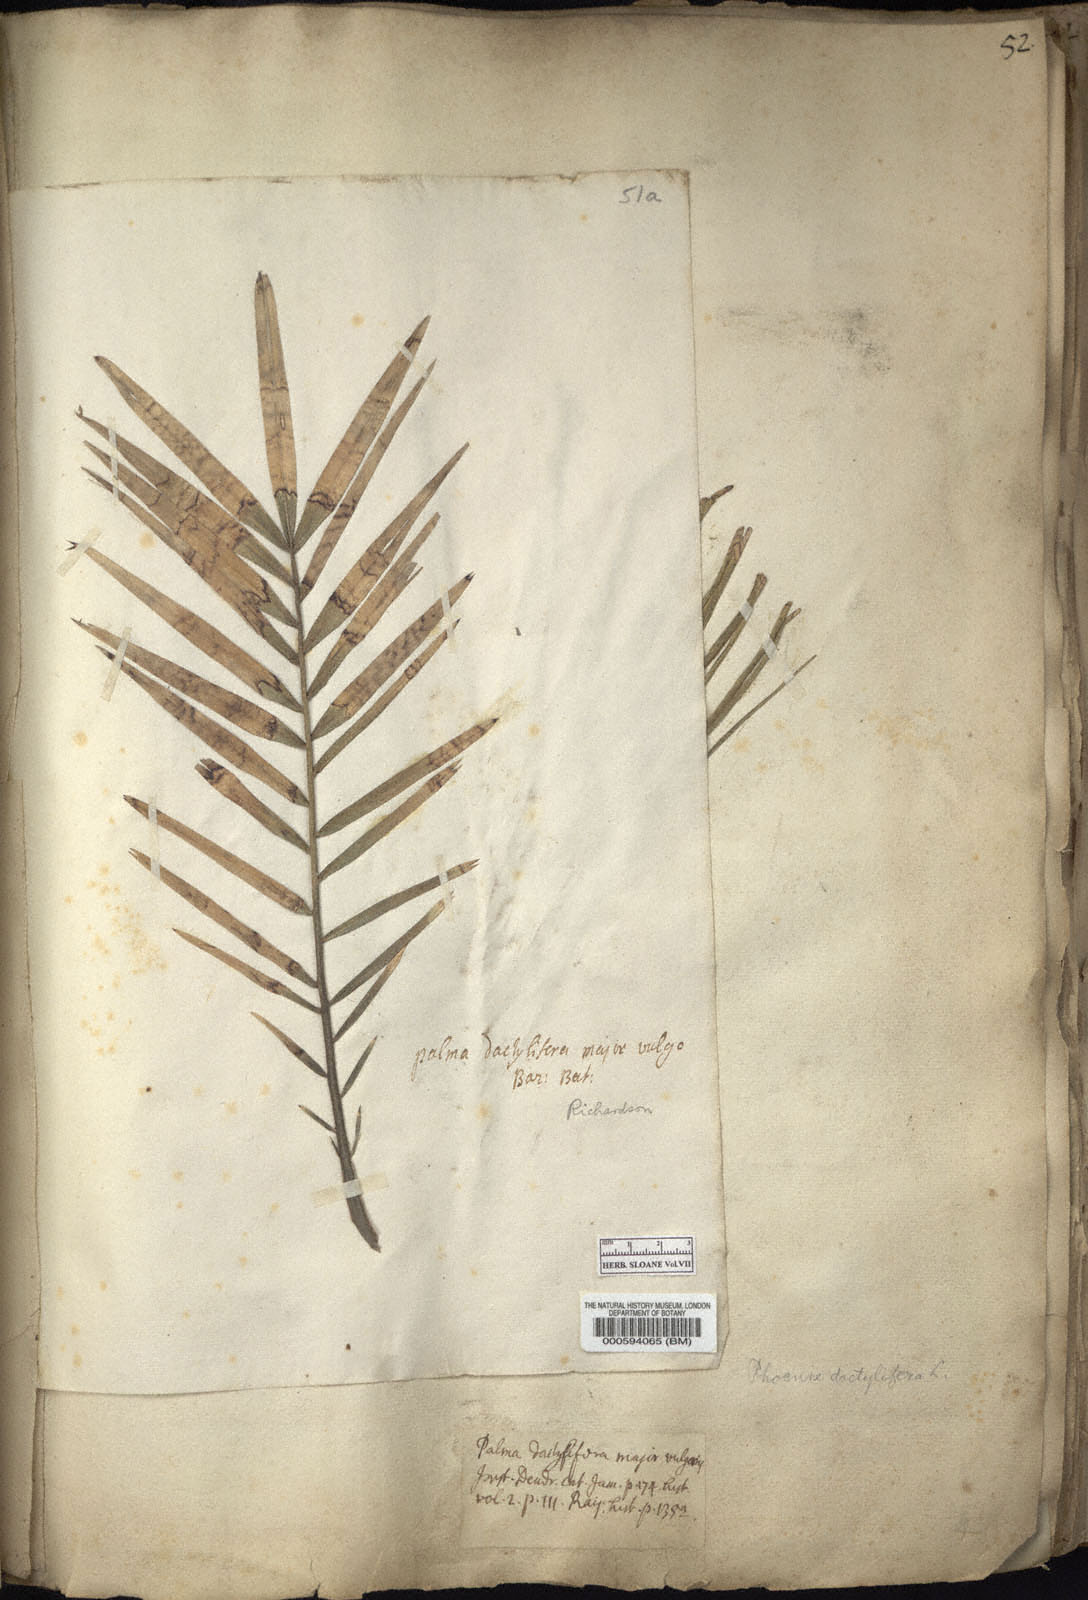 52
51a
palma dactylifera major vulgo
Bar: Bat:
Richardson
mm 1 2 3
HERB. SLOANE Vol.VII
THE NATURAL HISTORY MUSEUM, LONDON
DEPARTMENT OF BOTANY
000594065 (BM)
Phoenix dactylifera L.
Palma dactylifera major vulgaris
Jonst. Dendr. cat. Jam. p. 174. hist.
vol. 2. p. 111. Raij. hist. p. 1352.